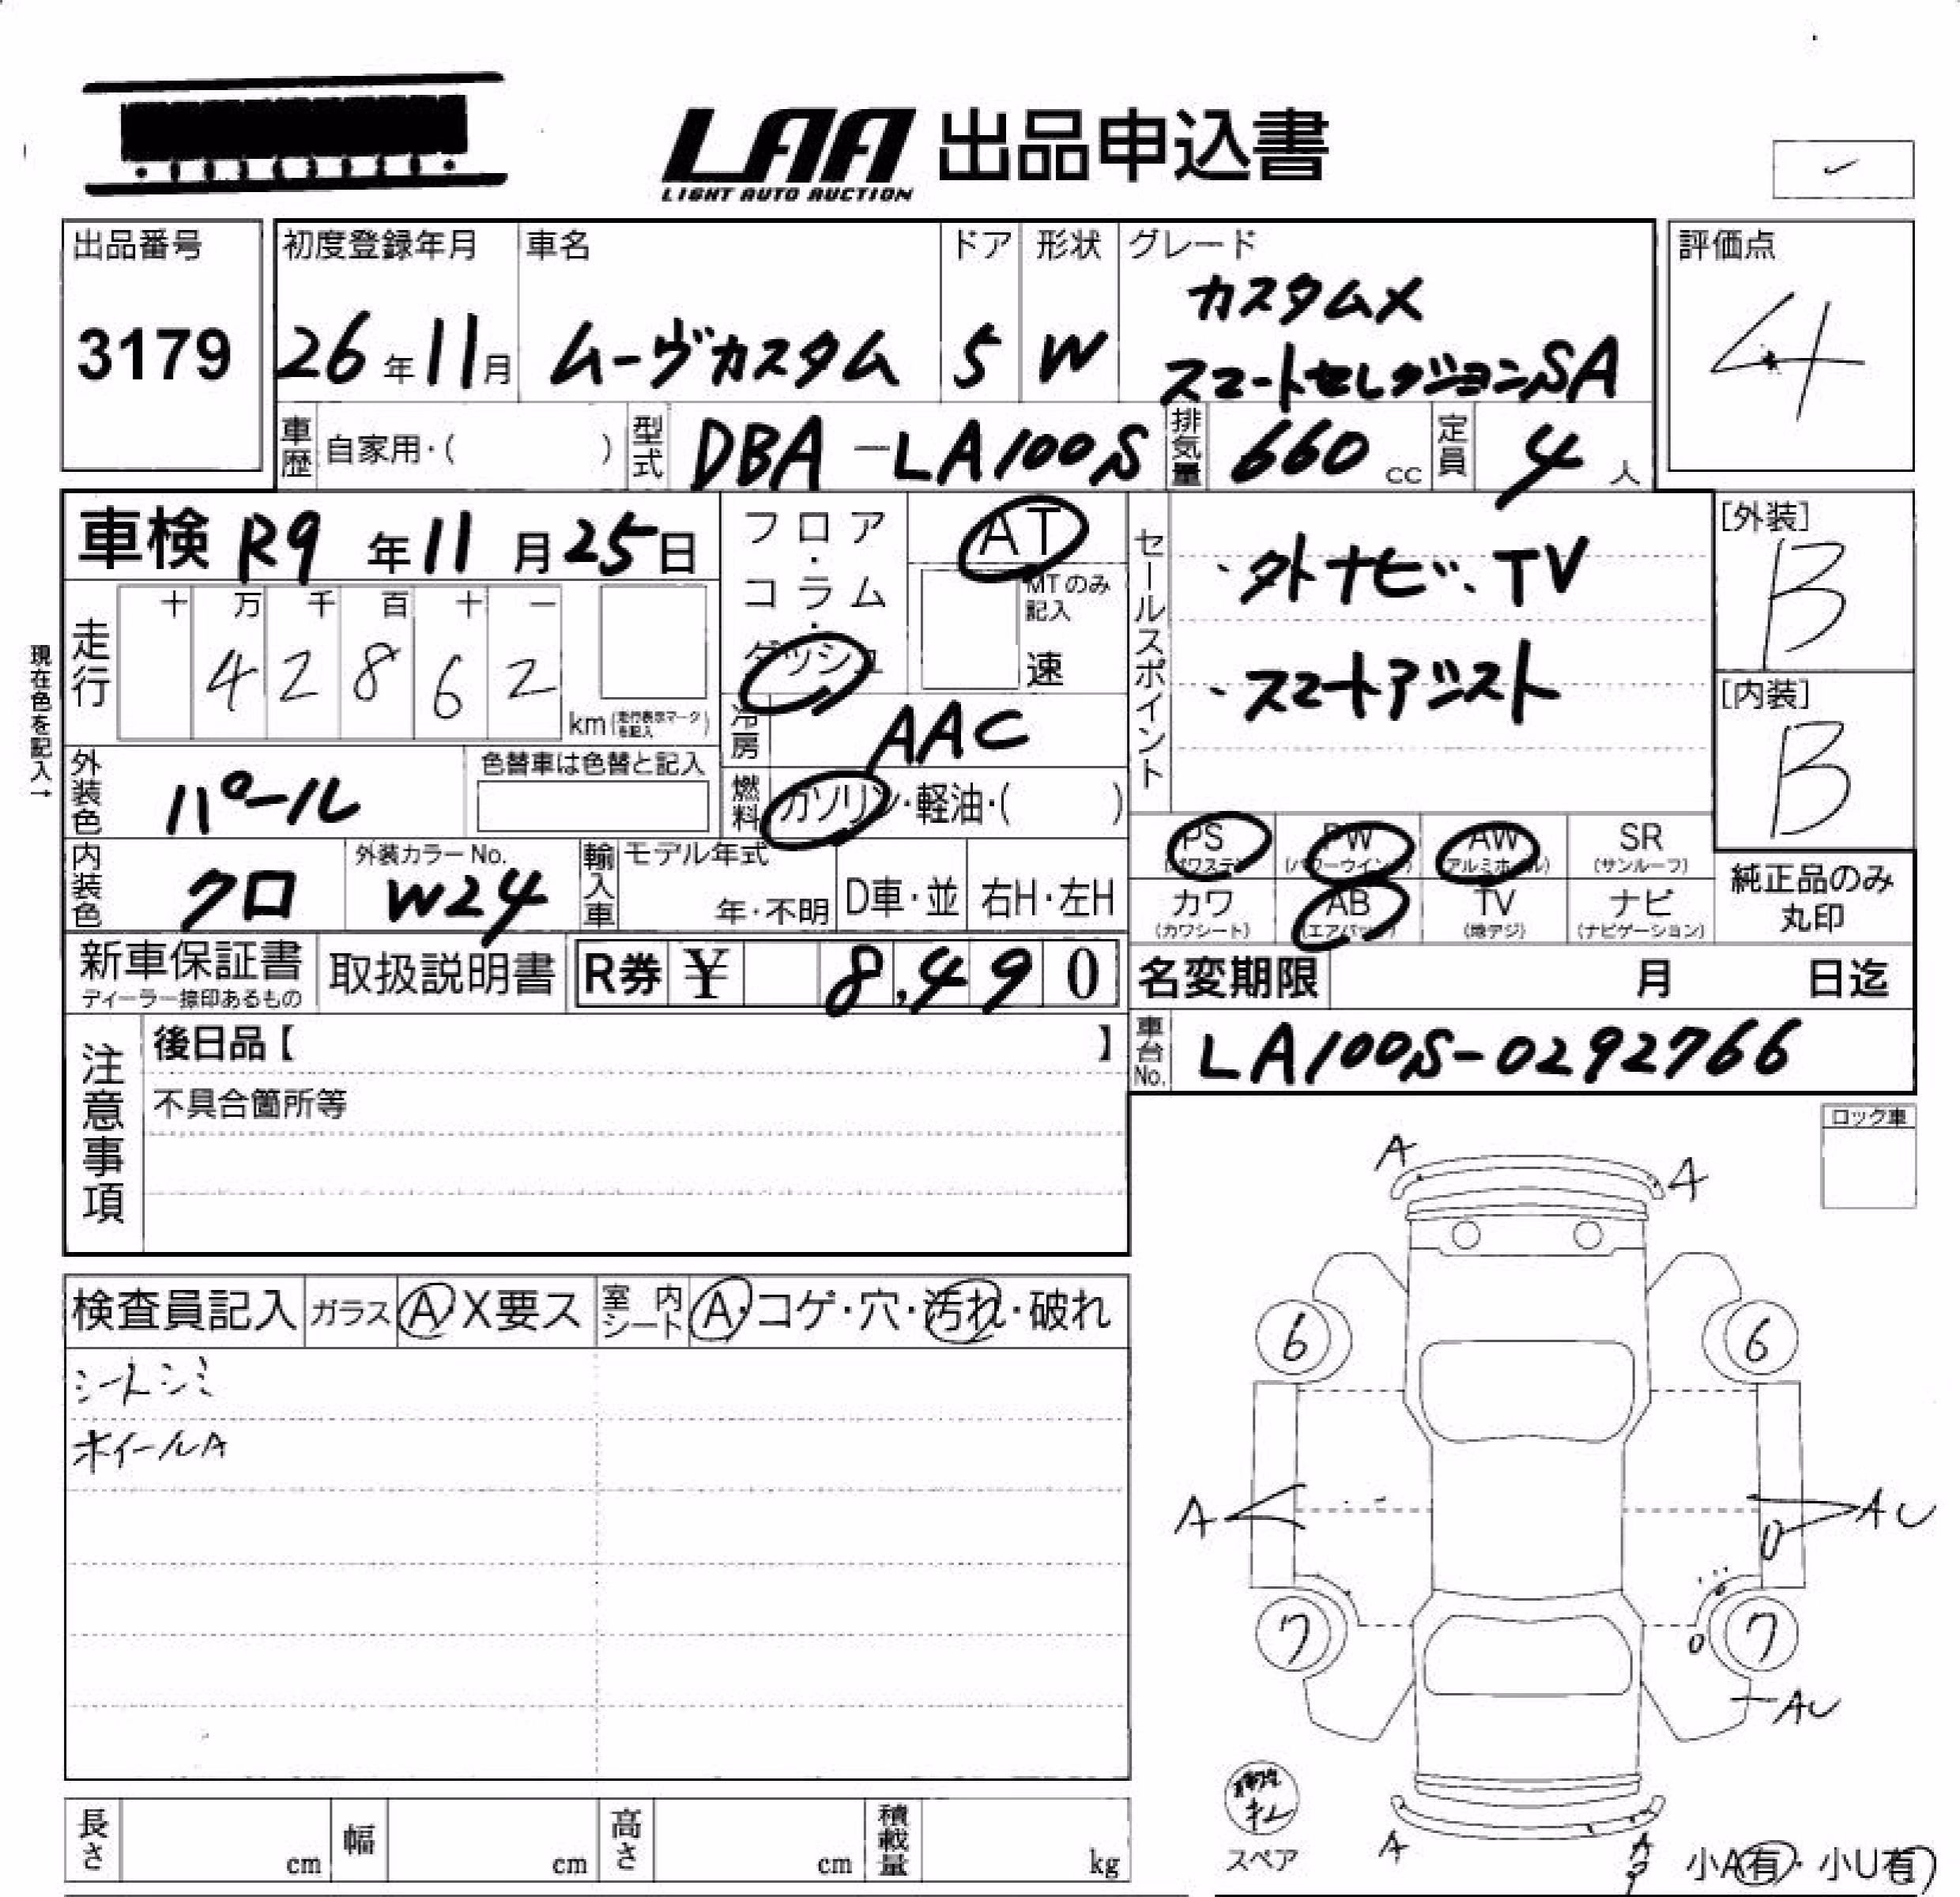 LAA 出品申込書
LIGHT AUTO AUCTION
出品番号 初度登録年月 車名 ドア 形状 グレード 評価点
3179 26年11月 ムーヴカスタム 5 W カスタムX スマートセレクションSA 4
車歴 自家用・( ) 型式 DBA-LA100S 排気量 660 cc 定員 4人
車検 R9年11月25日 フロア・コラム・ダッシュ AT セールスポイント [外装]
・外ナビ、TV B
MTのみ記入 速
・スマートアシスト [内装]
B
現在色を記入→
走行 十 万 千 百 十 一
4 2 8 6 2 km (走行表示マークを記入)
冷房 AAC
外装色 パール 色替車は色替と記入 燃料 ガソリン・軽油・( )
PS PW AW SR
(パワステ) (パワーウインド) (アルミホイール) (サンルーフ)
内装色 クロ 外装カラーNo. W24 輸入車 モデル年式 年・不明 D車・並 右H・左H
カワ AB TV ナビ 純正品のみ丸印
(カワシート) (エアバッグ) (地デジ) (ナビゲーション)
新車保証書 取扱説明書 R券 ¥ 8,490 名変期限 月 日迄
ディーラー捺印あるもの
注意事項 後日品【 】 車台No. LA100S-0292766
不具合箇所等
ロック車
A A
検査員記入 ガラス A X要ス 室内シート A・コゲ・穴・汚れ・破れ
6 6
シートシミ
ホイールA
A AU
U
7 7
AU
スペア
A A
小A有・小U有
長さ cm 幅 cm 高さ cm 積載量 kg